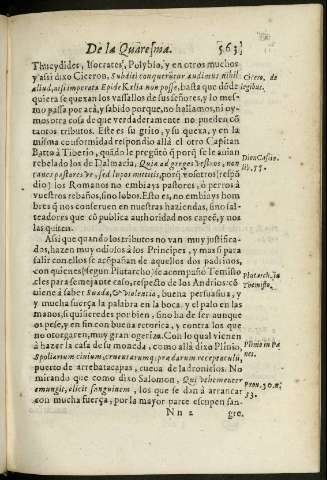 De la Quaresma. 563
Thucydides, Isocrates, Polybio, y en otros muchos
y assi dixo Ciceron, Subditi conqueruntur audimus nihil
aliud, nisi imperata non posse, basta que donde
quiera se quexan los vassallos de sus señores, y lo mes-
mo passa por acà, y sabido porque, no hallamos, ni oy-
mos otra cosa de que verdaderamente no pueden cō
tantos tributos. Este es su grito, y su quexa, y en la
misma conformidad respondio allà el otro Capitan
Batto à Tiberio, quādo le pregūtò q̃ porq̃ se le auian
rebelado los de Dalmacia, Quia ad greges vestros, non
canes pastores ve, sed lupos mittitis, porq̃ vosotros (respō
dio) los Romanos no embiays pastores, ò perros à
vuestros rebaños, sino lobos. Esto es, no embiays hom
bres q̃ nos conseruen en nuestras haziendas, sino sal-
teadores que cō publica authoridad nos capeē, y nos
las quiten.
Assi que quando los tributos no van muy justifica-
dos, hazen muy odiosos à los Principes, y mas si para
salir con ellos se acōpañan de aquellos dos padrinos,
con quienes (segun Plutarcho) se acompaño Temisto
cles para semejante caso, respecto de los Andrios: cō
uiene à saber Suada, & violentia, buena persuasiua, y
y mucha fuerça la palabra en la boca, y el palo en las
manos, si quisieredes por bien, sino ha de ser aunque
os pese, y en fin con buena retorica, y contra los que
no otorgaren, muy gran ogeriza. Con lo qual vienen
à hazer la casa de su moneda, como allà dixo Plinio,
Spoliarium ciuium, cruentarumq; prædarum receptaculū,
puerto de arrebatacapas, cueua de ladronicios. No
mirando que como dixo Salomon, Qui vehementer
emungit, elicit sanguinem, los que se dan à arrancar
con mucha fuerça, por la mayor parte escupen san-
N n 2 gre.
Cicero, de
legibus.
Dion Casio
li. 55.
Plutarch. in
Themisto.
Plinio in Pa
nes.
Prou. 30. n.
33.